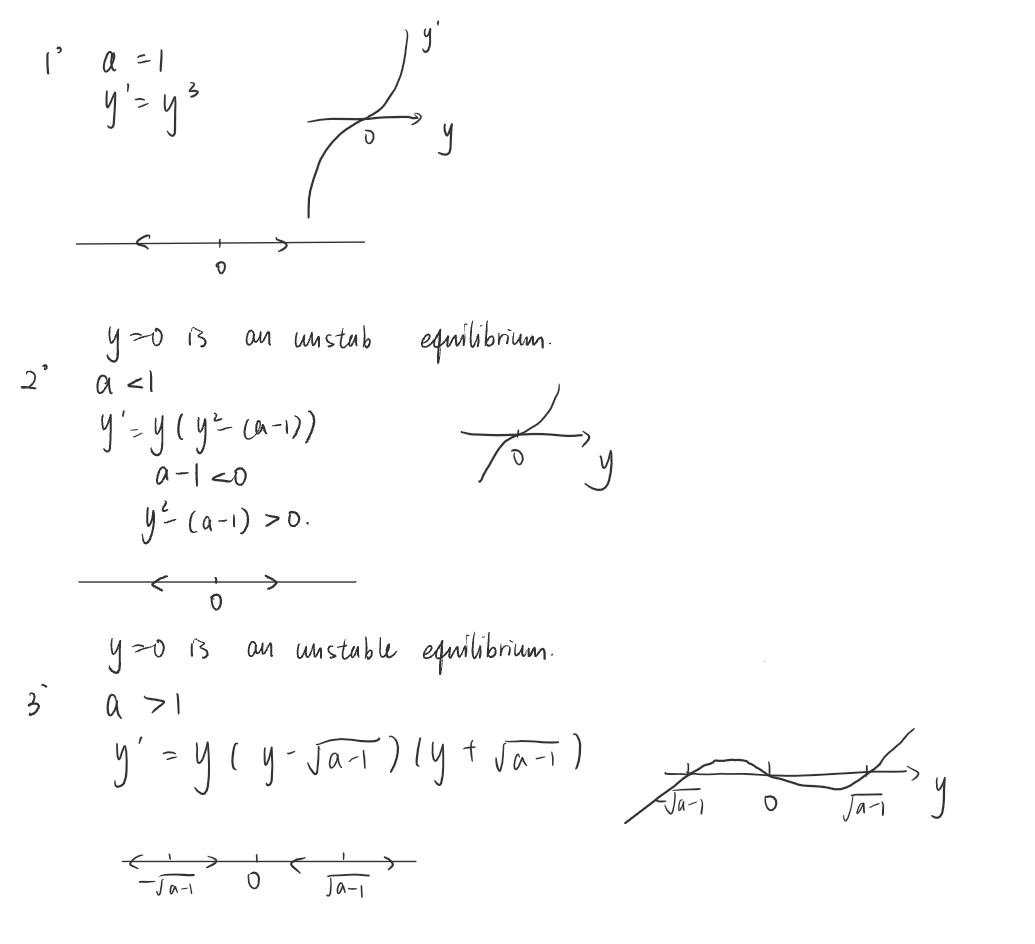 1° a = 1
y' = y³
y'
0
y
0
y=0 is an unstab equilibrium.
2° a < 1
y' = y(y² - (a-1))
0
y
a-1 < 0
y² - (a-1) > 0.
0
y=0 is an unstable equilibrium.
3° a > 1
y' = y(y - √(a-1))(y + √(a-1))
-√(a-1) 0 √(a-1) y
-√(a-1) 0 √(a-1)